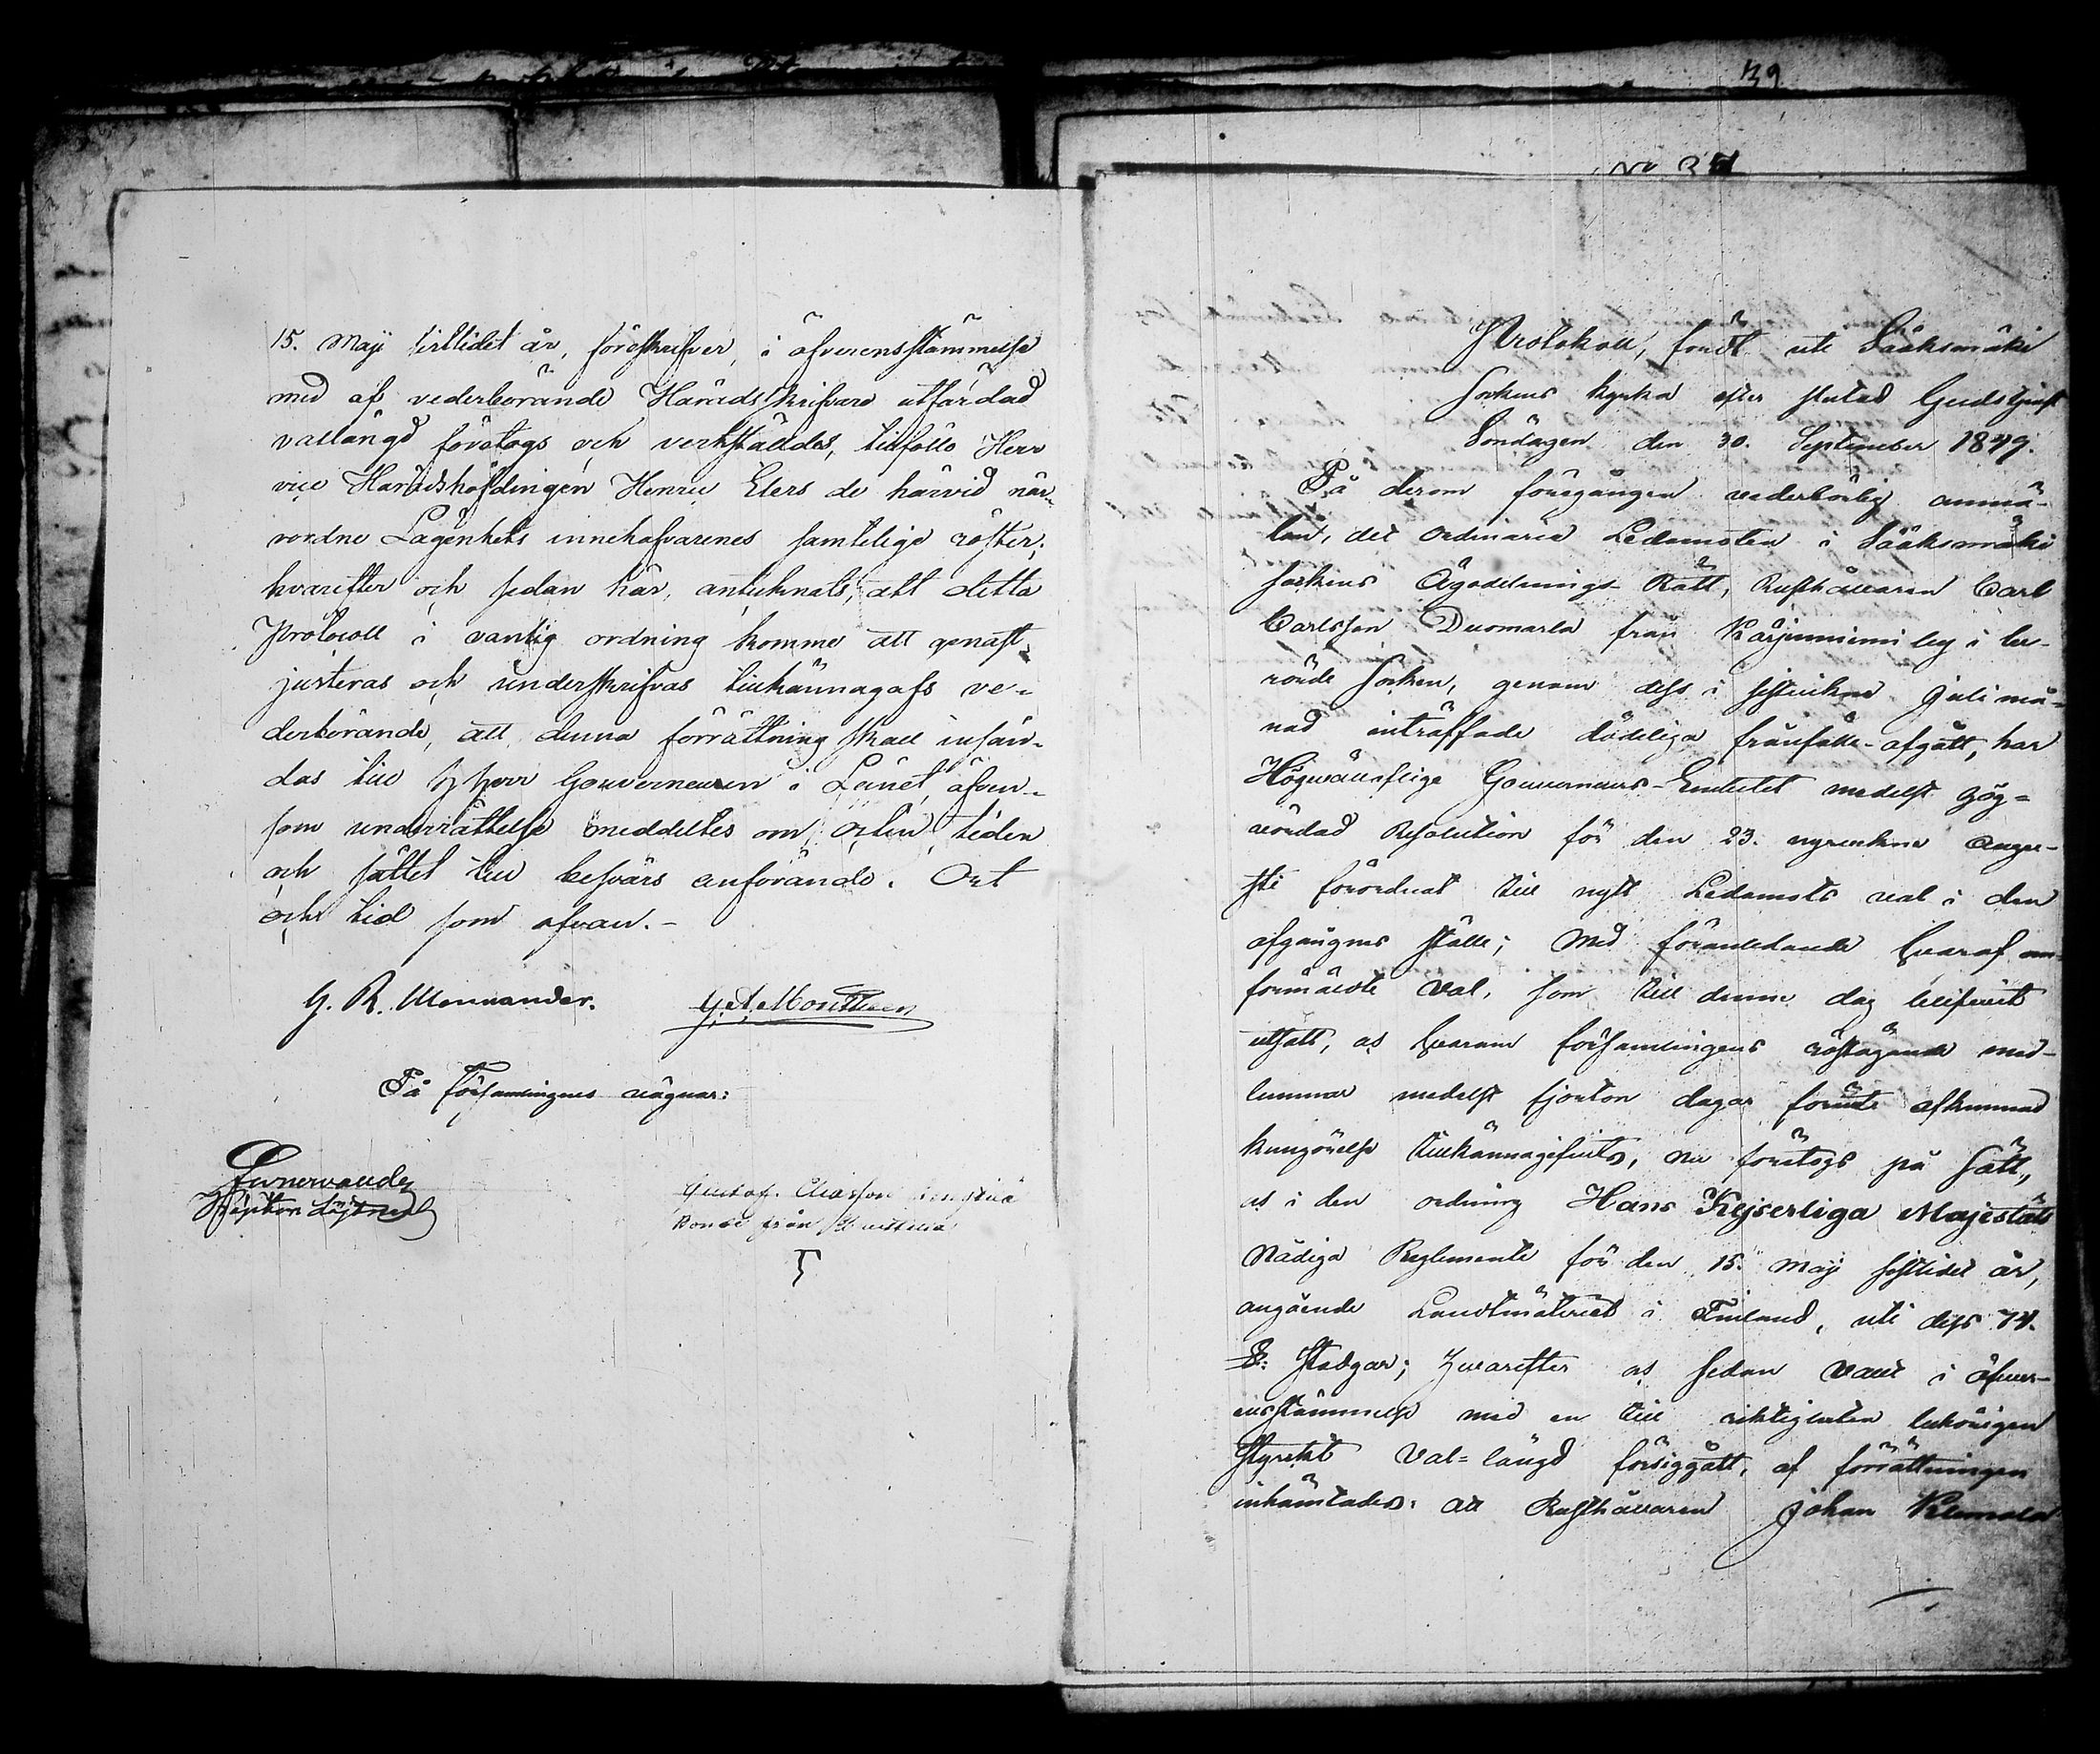 15. Maji sistlidet år, föreskrifver, i öfverensstämmelse
med af vederbörande Häradsskrifvare utfärdad
vallängd företogs och verkställdes, tillföllo Herr
vice Häradshöfdingen Henric Elers de härvid när-
vordne Lägenhets innehafvarenes samtelige röster;
hvarefter och sedan här antecknats, att detta
Protocoll i vanlig ordning komme att genast
justeras och underskrifvas tillkännagafs ve-
derbörande, att denna förrättning skall insän-
das till Herr Gouverneuren i Länet, äfven-
som underrättelse meddeltes om orten, tiden
och sättet till besvärs anförande. Ort
och tid som ofvan.-
G. R. Mennander.
På Församlingens vägnar:
Gustaf
Bonde från
139
No
Protokoll, fördt uti Sääksmäki
Sockens kyrka efter slutad Gudstjenst
Söndagen den 30. September 1849.
På derom föregången vederbörlig anmä-
lan, det ordinarie Ledamoten i Sääksmäki
Sockens Ägodelnings-Rätt, Rusthållaren Carl
Carlsson Duomarla från Kärjenniemi by i be-
rörde Socken, genom dess i sistvikne Juli må-
nad inträffade dödeliga frånfälle-afgått, har
Högvälloflige Gouverneurs-Embetet medelst gög-
vördad Resolution för den 23. nyssvikne Augu-
sti förordnat till nytt Ledamots val i den
afgångnes ställe; Med föranledande hvaraf om-
förmälde val, som till denne dag blifvit
utsatt, och hvarom församlingens röstägande med-
lemmar medelst fjorton dagar förut afkunnad
kungörelse tillkännagifvits, nu företogs på sätt,
och i den ordning Hans Kejserliga Majestäts
Nådiga Reglemente för den 15. Maji sistlidet år,
angående Landtmäteriet i Finland, uti dess 74.
§: stadgar; Hvarefter och sedan valet i öfver-
ensstämmelse med en till riktigheten behörigen
styrkt Val-längd försiggått, af förrättningen
inhämtades: att Rusthållaren Johan Klemola